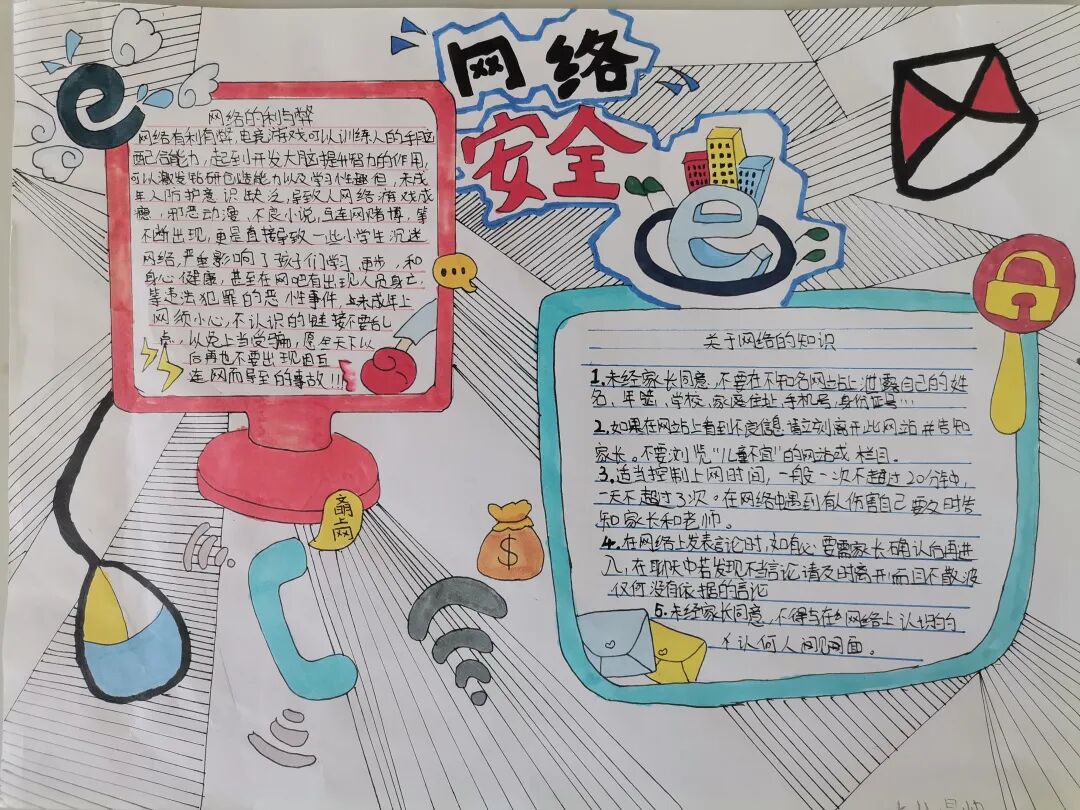 网络
安全
网络的利与弊
网络有利有弊,电竞游戏可以训练人的手脑
配合能力,起到开发大脑提升智力的作用,
可以激发钻研创造能力以及学习性趣但,未成
年人防护意识缺乏,导致人网络游戏成
瘾,邪恶动漫、不良小说,互连网赌博,等
不断出现,更是直接导致一些小学生沉迷
网络,严重影响了孩子们学习 进步,和
身心健康,甚至在网吧有出现人员身亡,
等违法犯罪的恶性事件,未成年上
网须小心,不认识的链接不要乱
点,以免上当受骗,愿今天下以
后再也不要出现因互
连网而导至的事故!!!
文明上网
$
关于网络的知识
1.未经家长同意,不要在不知名网站上泄露自己的姓
名、年龄、学校、家庭住址、手机号、身份证号…
2.如果在网站上看到不良信息 请立刻离开此网站 并告知
家长。不要浏览“儿童不宜”的网站或栏目。
3.适当控制上网时间,一般一次不超过20分钟,
一天不超过3次。在网络中遇到有人伤害自己 要及时告
知家长和老师。
4.在网络上发表言论时,如有必要需家长确认后再进
入,在聊天中若发现不当言论,请及时离开,而且不散波
任何没有依据的言论
5.未经家长同意,不得与在网络上认识的
任何人间见面。